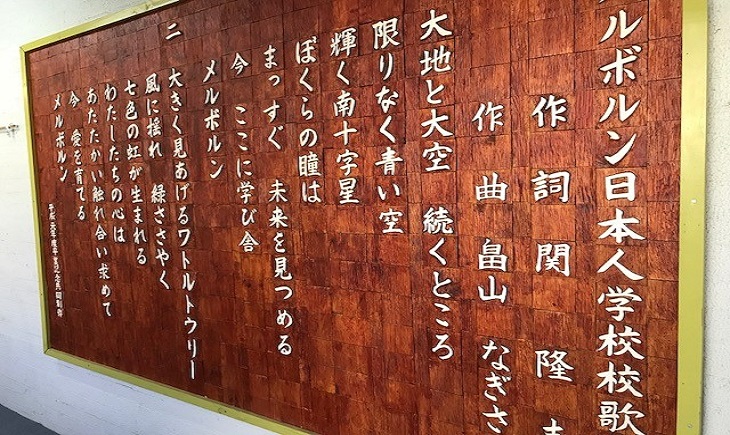 メルボルン日本人学校校歌
作詞 関 隆
作曲 畠山 なぎさ
大地と大空 続くところ
限りなく青い空
輝く南十字星
ぼくらの瞳は
まっすぐ 未来を見つめる
今 ここに学び舎
メルボルン
二 大きく見あげるワトルトウリー
風に揺れ 緑ささやく
七色の虹が生まれる
わたしたちの心は
あたたかい触れ合い求めて
今 愛を育てる
メルボルン
平成元年度卒業記念共同制作